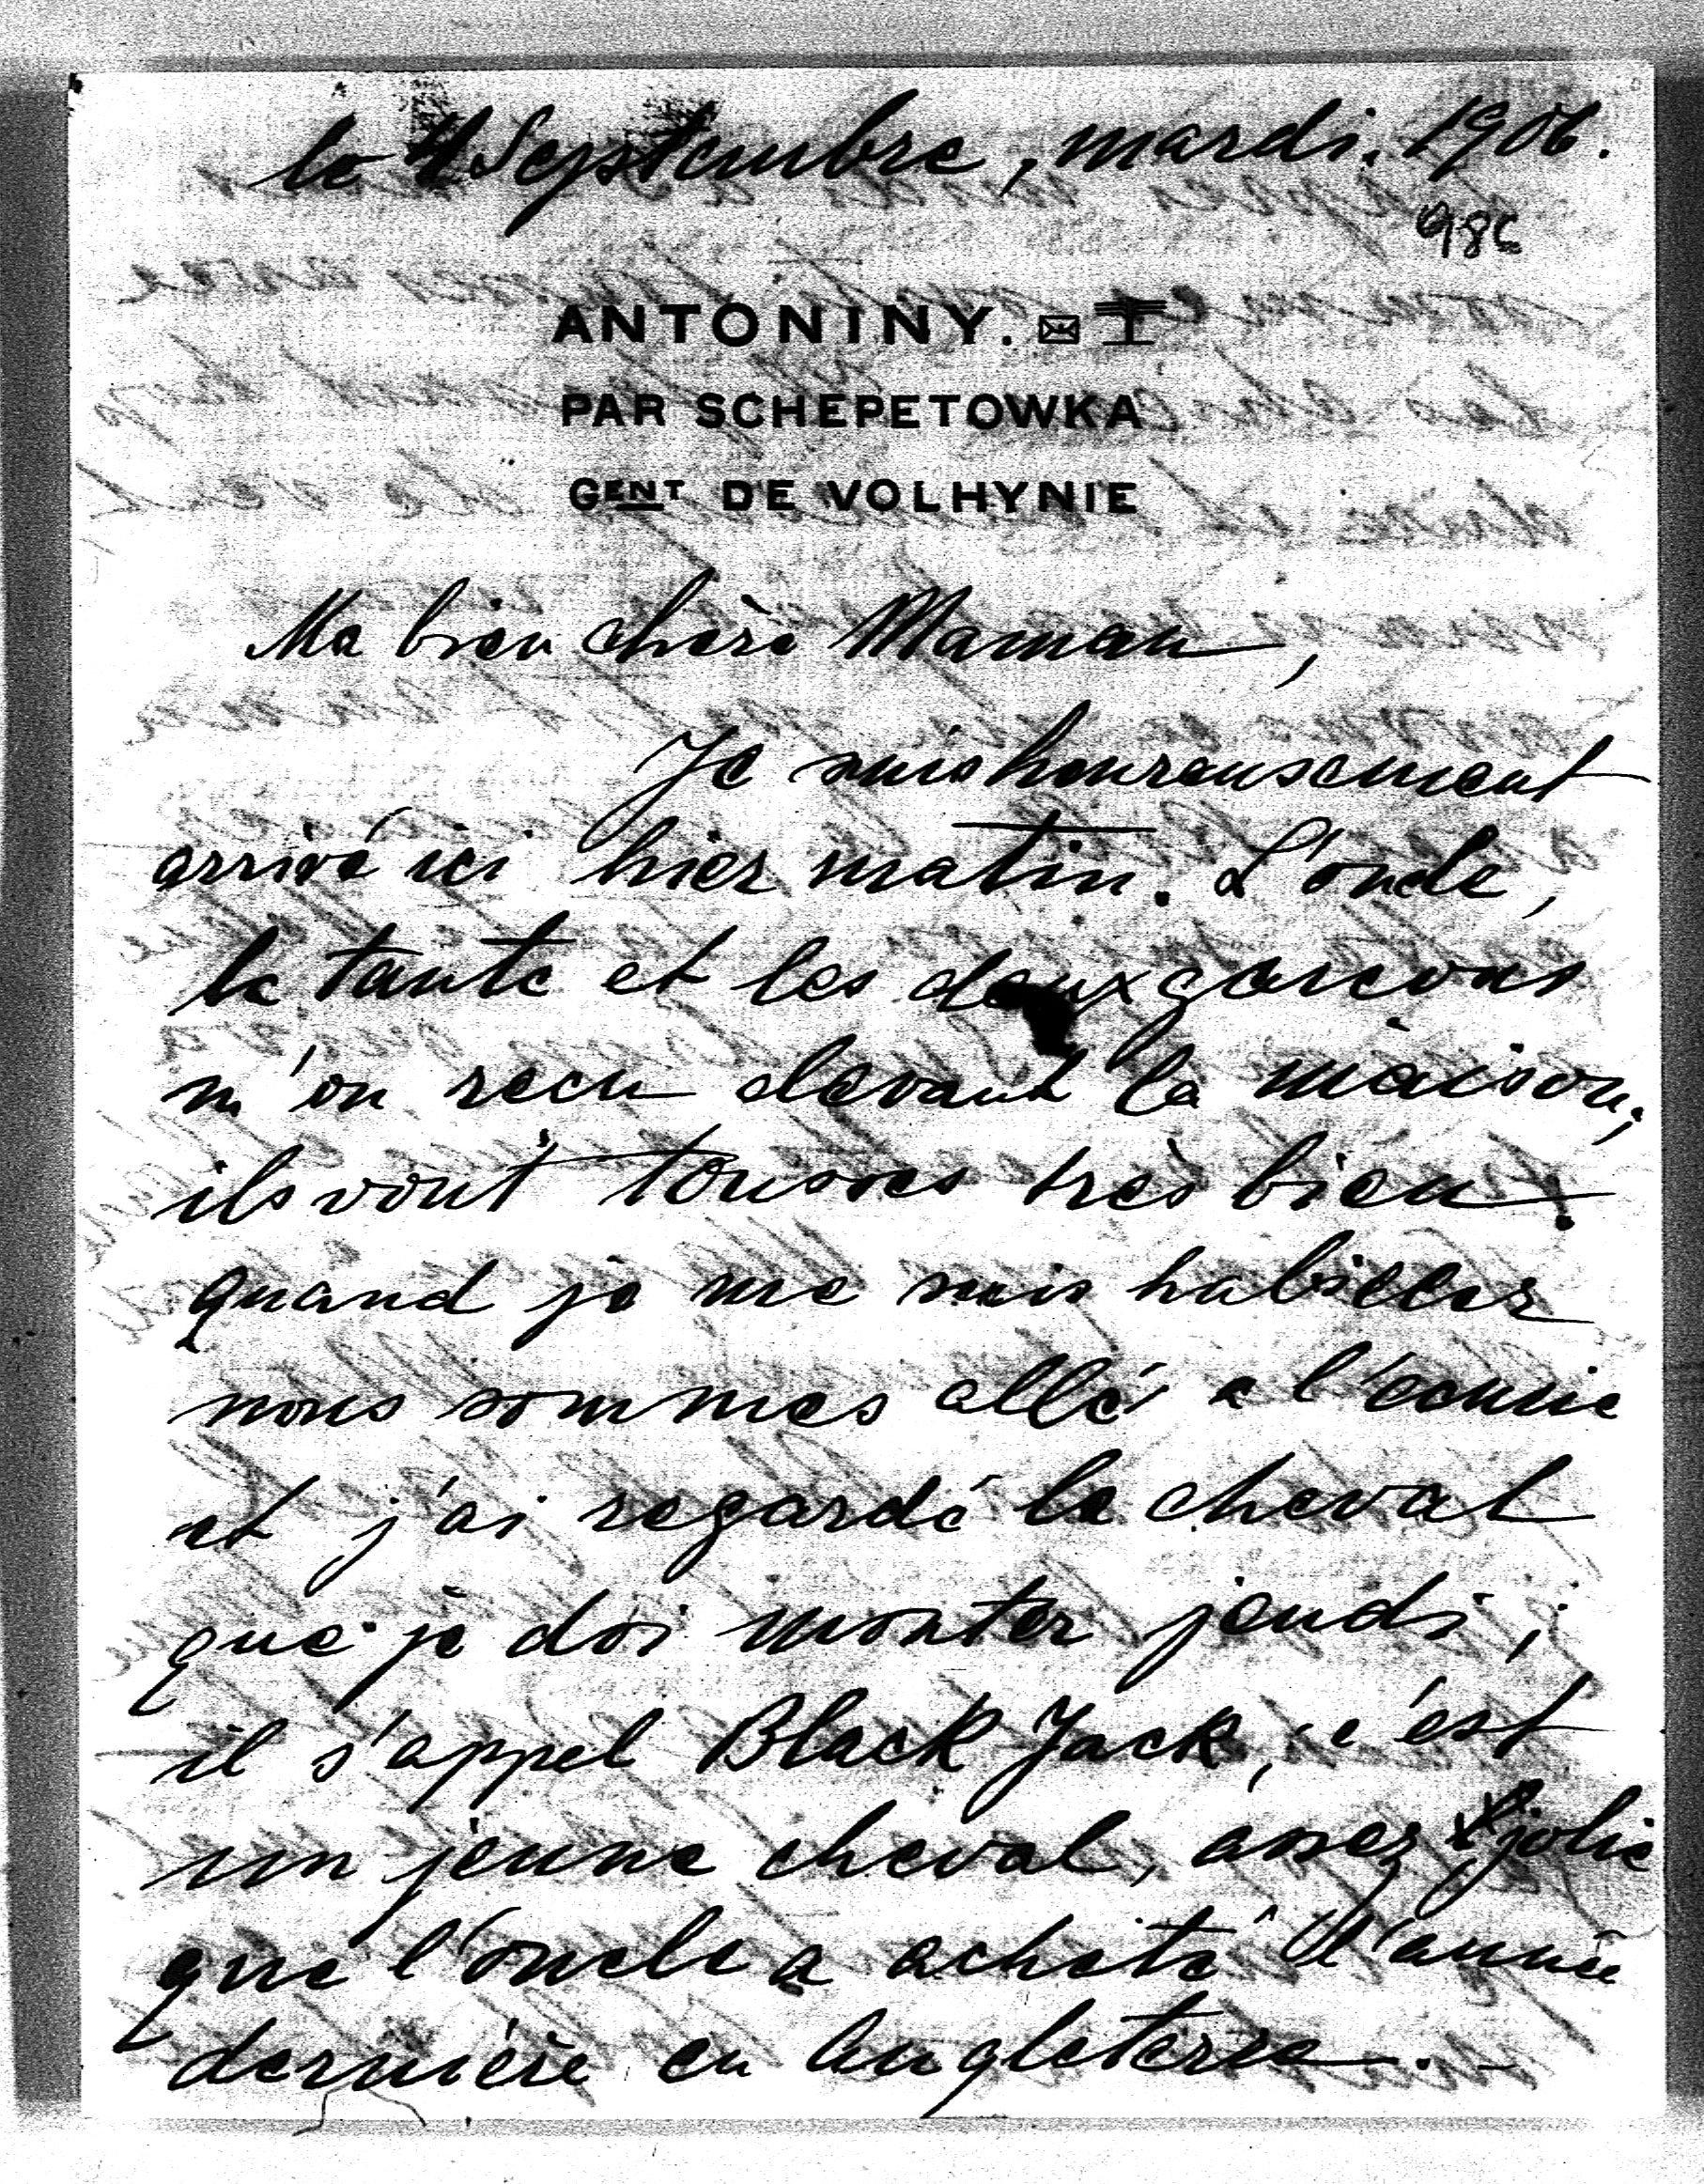 le 4 Septembre, mardi. 1906.
986
ANTONINY.
PAR SCHEPETOWKA
GENT DE VOLHYNIE
Ma bien chère Maman,
Je suis heureusement
arrivé ici hier matin. L'oncle,
la tante et les deux garcons
m'on recu devant la maison;
ils vont tousses très bien.
quand je me suis habiller
nous sommes allé a l'ecurie
et j'ai regardé le cheval
que je doi monter jeudi;
il s'appel Black Jack, c'est
un jeune cheval, assez jolie
que l'oncle a acheté l'année
dernière en Angleterre. -